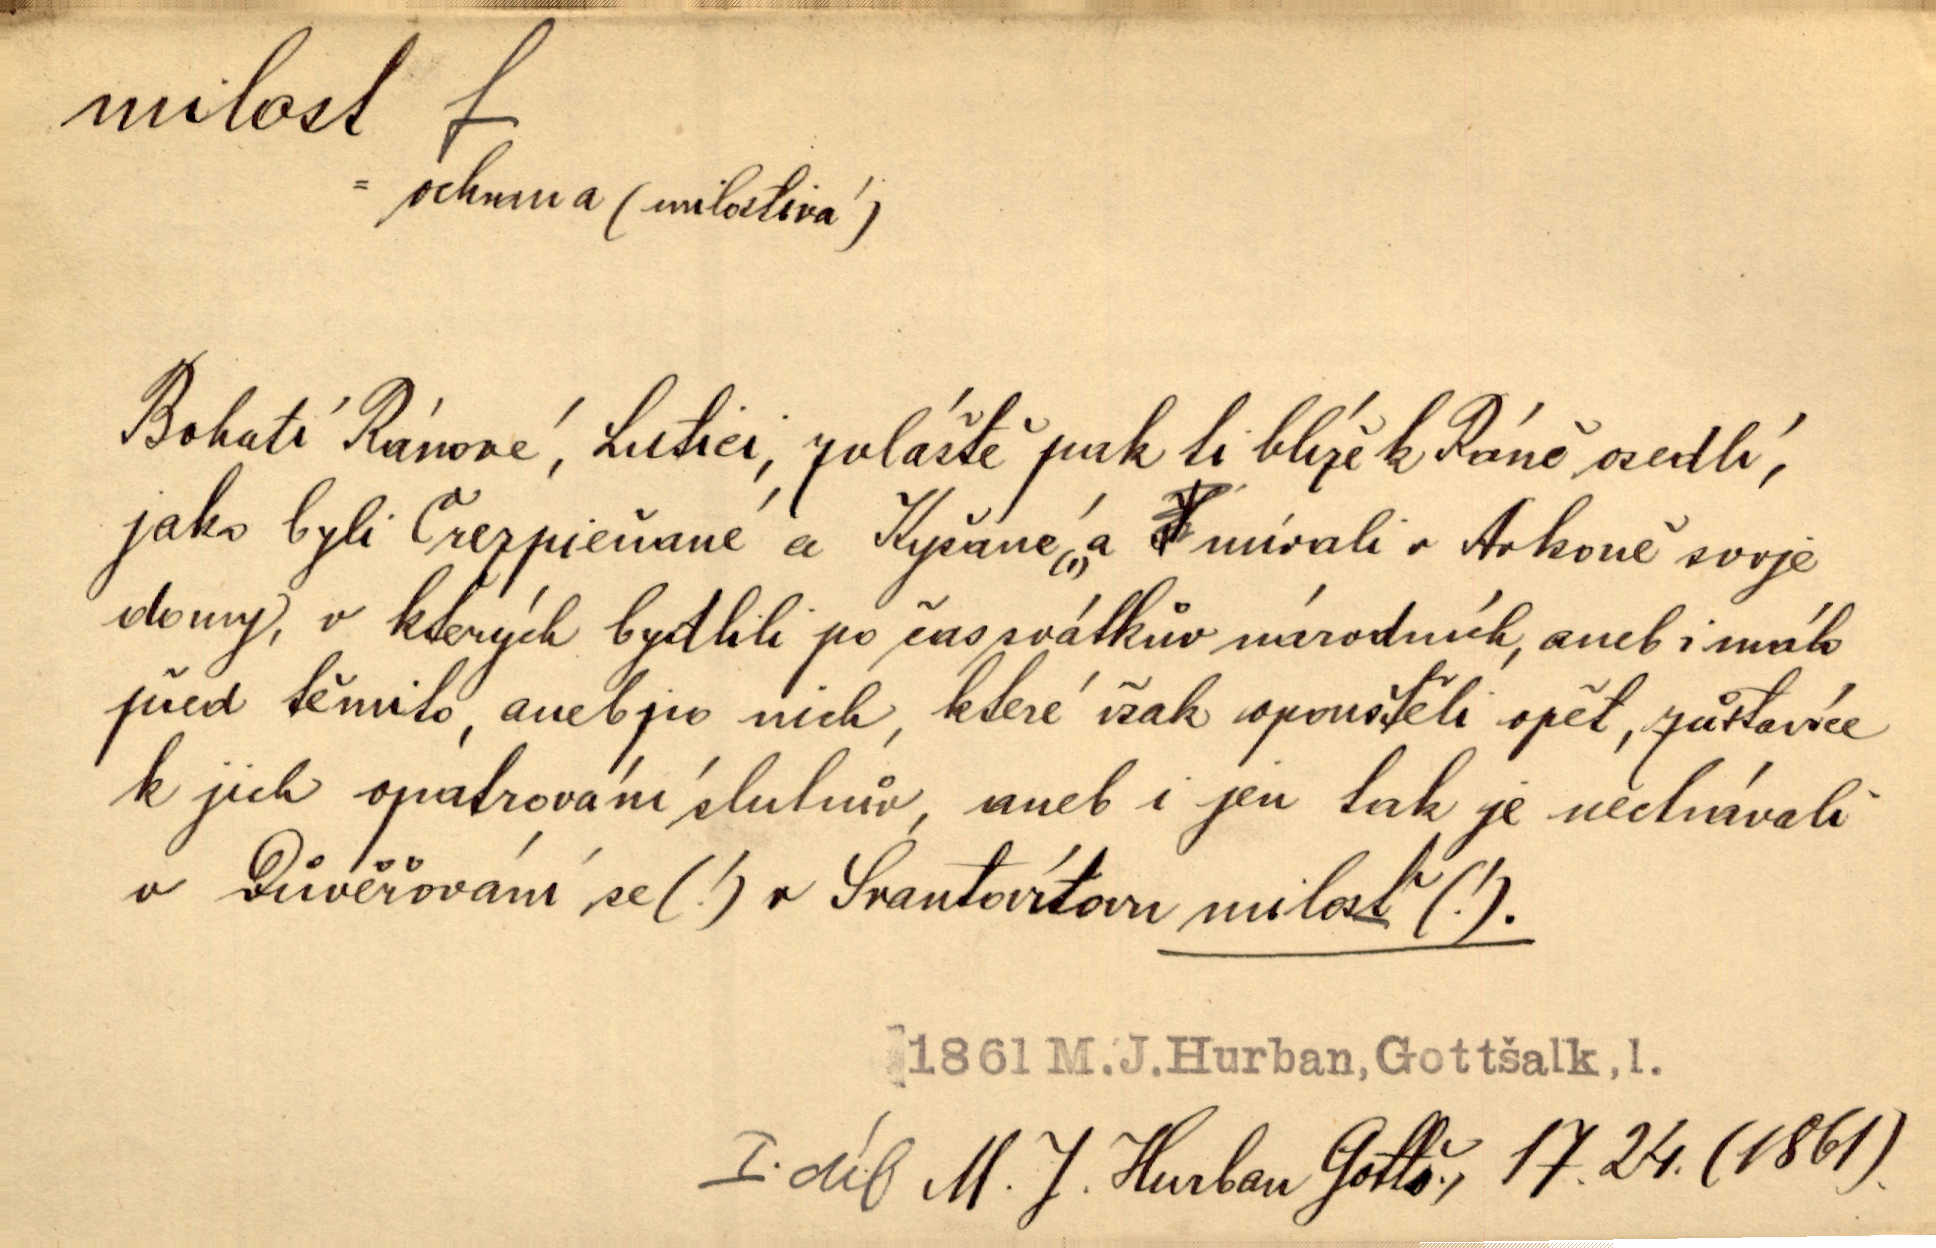 milost f
= ochrana (milostivá)
Bohatí Ránové, Lutici, zvláště pak ti blíže k Ráně osedlí,
jako byli Črezpieňané a Kyšané(!), a mívali v Arkoně svoje
domy, v kterých bydlili po čas svátkův národních, aneb i málo
před těmito, aneb po nich, které však opouštěli opět, zůstavíce
k jich opatrování sluhův, aneb i jen tak je nechávali
v Důvěřování se (!) v Svantovítovu milosť (!).
1861 M.J.Hurban,Gottšalk,l.
I. díl M. J. Hurban Gottš., 17. 24. (1861).